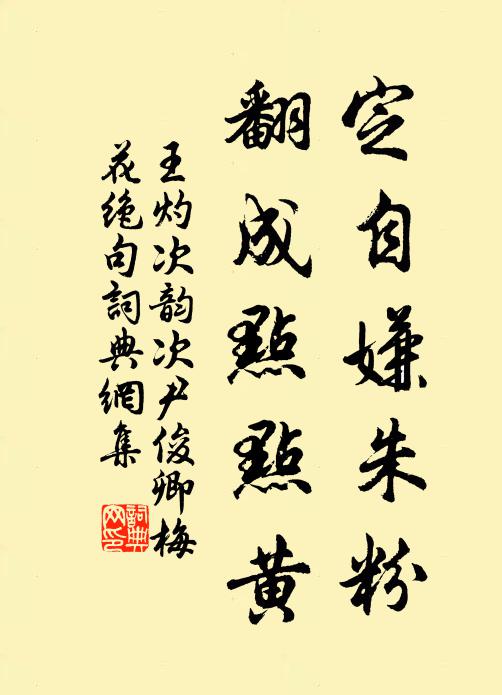 定自嫌朱粉
翻成點點黄
王灼次韵次尹俊卿梅
花绝句詞典網集
詞典
网印